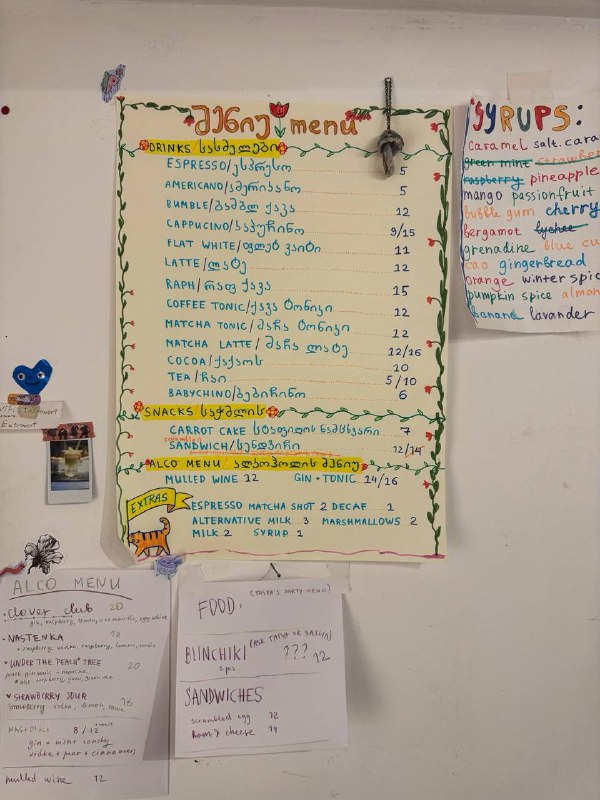 მენიუ menu
DRINKS/სასმელები
ESPRESSO/ესპრესო 5
AMERICANO/ამერიკანო 5
BUMBLE/ბამბლ ყავა 12
CAPPUCINO/კაპუჩინო 9/15
FLAT WHITE/ფლეტ ვაიტი 11
LATTE/ლატე 12
RAPH/რაფ ყავა 15
COFFEE TONIC/ყავა ტონიკი 12
MATCHA TONIC/მარჩა ტონიკი 12
MATCHA LATTE/მარჩა ლატე 12/16
COCOA/ქაქაოს 10
TEA/ჩაი 5/10
BABYCHINO/ბებიჩინო 6
SNACKS საჭმლის
CARROT CAKE სტაფილოს ნამცხვარი 7
SANDWICH/სენდვიჩი 12/14
ALCO MENU ალკოჰოლის მენიუ
MULLED WINE 12 GIN + TONIC 14/16
EXTRAS
ESPRESSO MATCHA SHOT 2 DECAF 1
ALTERNATIVE MILK 3 MARSHMALLOWS 2
MILK 2 SYRUP 1
SYRUPS:
caramel salt. cara
green mint strawber
raspberry pineapple
mango passionfruit
bubble gum cherry
bergamot lychee
grenadine blue cu
cao gingerbread
orange winter spic
pumpkin spice almon
banana lavander
Introvert
Extrovert
ALCO MENU
Clover club 20
gin, raspberry, lemon, vermouth, egg white
NASTENKA 18
raspberry vodka, raspberry, lemon, tonic
UNDER THE PEACH TREE 20
STRAWBERRY SOUR 18
strawberry vodka, lemon, tonic
NASTOIKI 8/12
gin + mint candy
vodka + pear + cinnamon
mulled wine 12
FOOD: (TAIYA'S PARTY MENU)
BLINCHIKI (ASK TAIYA OR SASHA) ??? 12
SANDWICHES
scrambled egg 12
ham & cheese 14